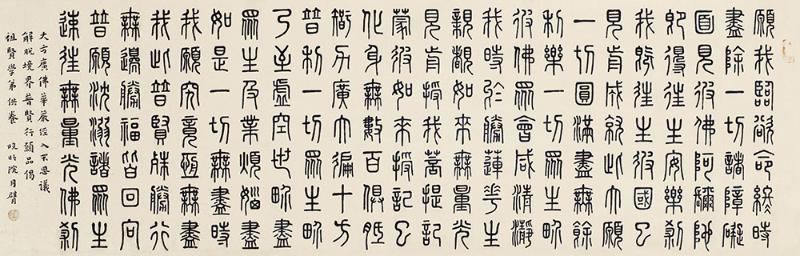 願我臨欲命終時
盡除一切諸障礙
面見彼佛阿彌陀
即得往生安樂剎
我既往生彼國已
見前成就此大願
一切圓滿盡無餘
利樂一切眾生界
彼佛眾會咸清淨
我時於勝蓮華生
親覩如來無量光
見前授我菩提記
蒙彼如來授記已
化身無數百俱胝
智力廣大遍十方
普利一切眾生界
乃至虛空世界盡
眾生及業煩惱盡
如是一切無盡時
我願究竟恆無盡
我此普賢殊勝行
無邊勝福皆回向
普願沈溺諸眾生
速往無量光佛剎
大方廣佛華嚴經入不思議
解脫境界普賢行願品偈
祖賢學弟供養
晚晴院月臂